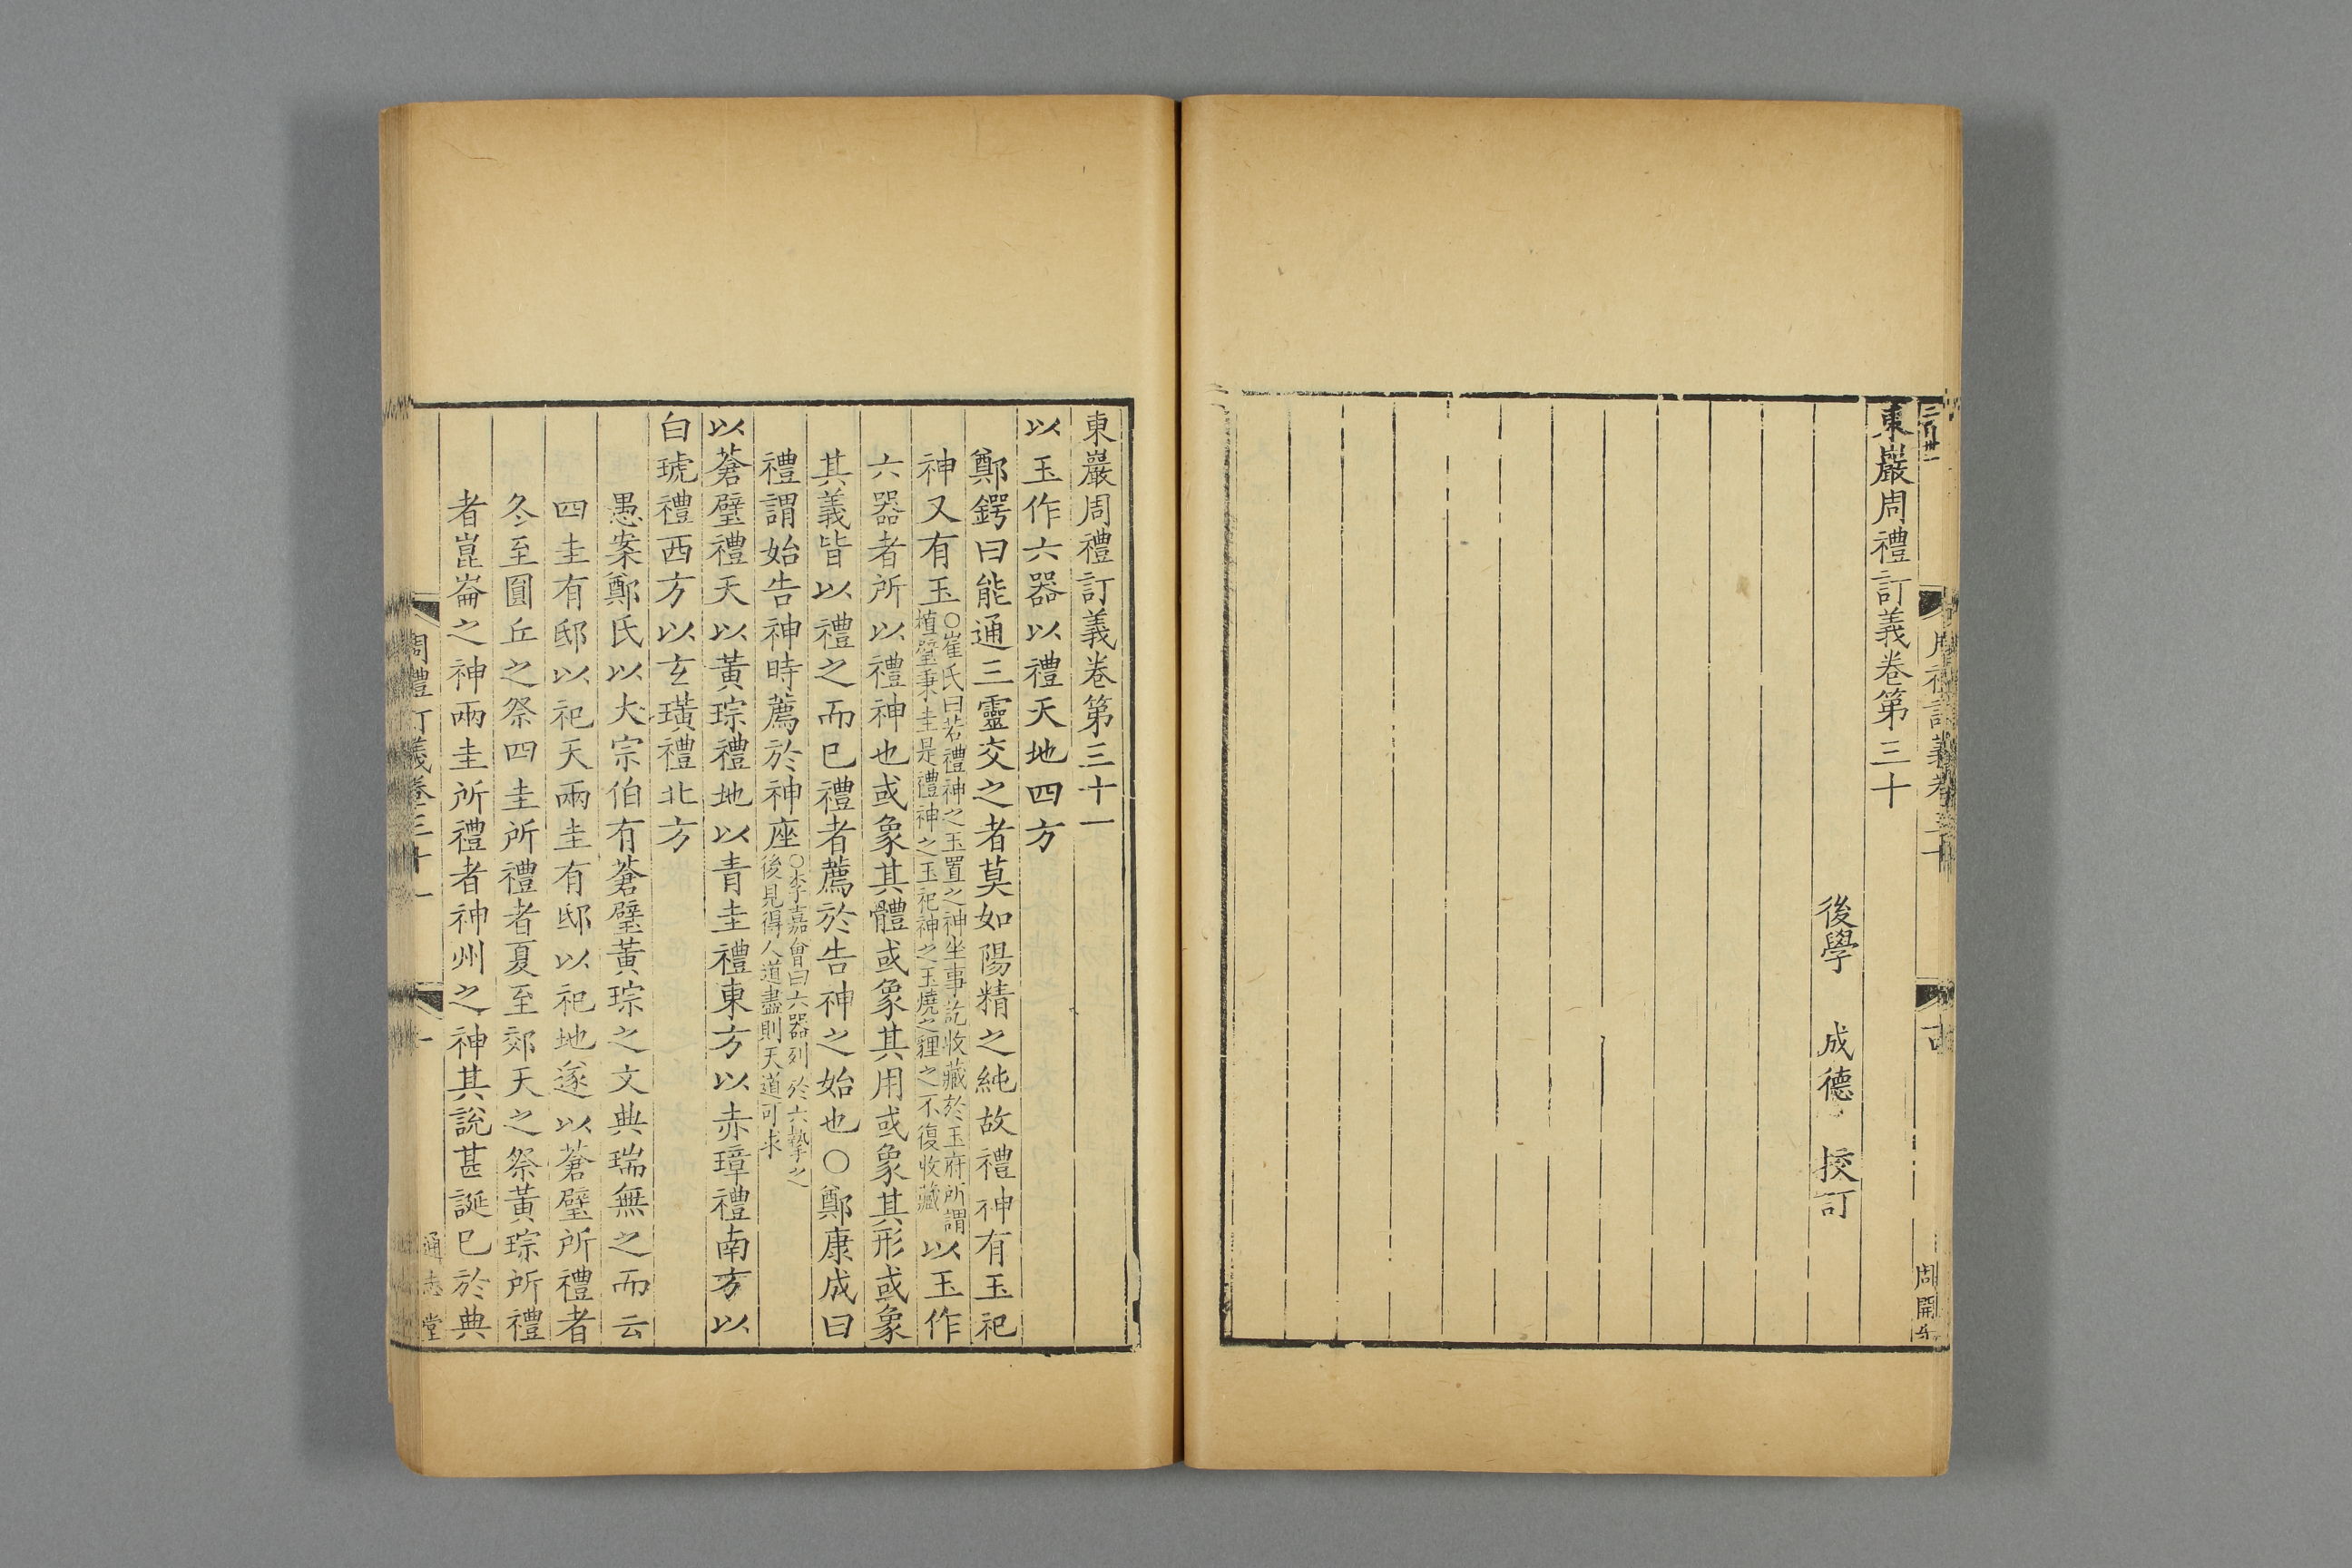 東巖周禮訂義卷第三十
後學 成德 挍訂
周開
東巖周禮訂義卷第三十一
以玉作六器以禮天地四方
鄭鍔曰能通三靈交之者莫如陽精之純故禮神有玉祀
神又有玉○崔氏曰若禮神之玉置之神坐事訖收藏於玉府所謂植璧秉圭是禮神之玉祀神之玉燒之貍之不復收藏以玉作
六器者所以禮神也或象其體或象其用或象其形或象
其義皆以禮之而已禮者薦於告神之始也○鄭康成曰
禮謂始告神時薦於神座○李嘉會曰六器列於六摯之後見得人道盡則天道可求
以蒼璧禮天以黃琮禮地以青圭禮東方以赤璋禮南方以
白琥禮西方以玄璜禮北方
愚案鄭氏以大宗伯有蒼璧黃琮之文典瑞無之而云
四圭有邸以祀天兩圭有邸以祀地遂以蒼璧所禮者
冬至圓丘之祭四圭所禮者夏至郊天之祭黃琮所禮
者崑崙之神兩圭所禮者神州之神其說甚誕已於典
周禮訂義卷三十一
一
通志堂